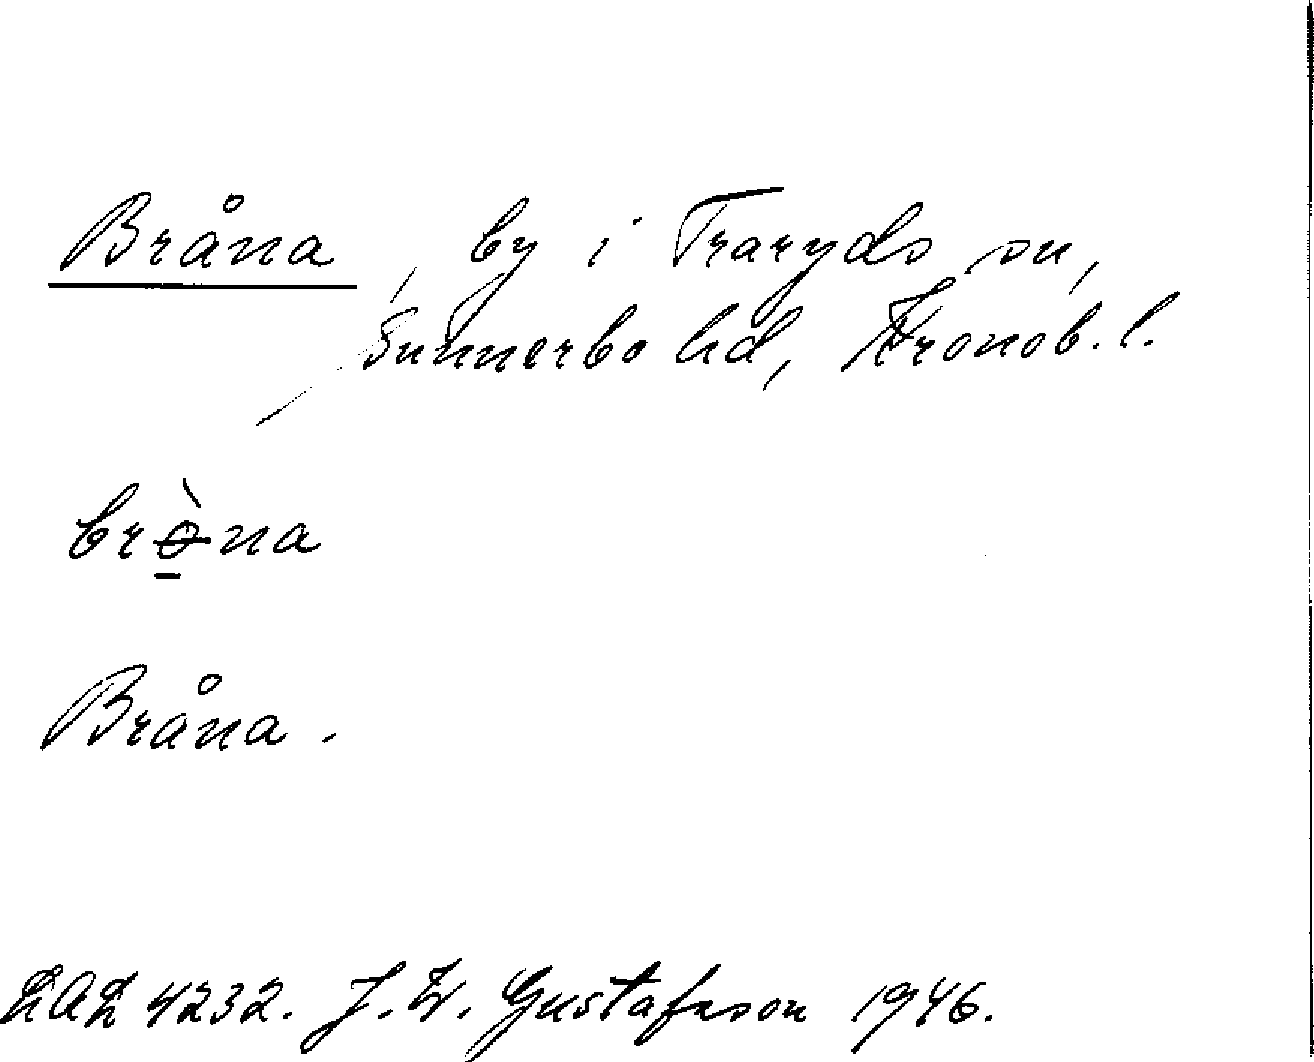 Bråna, by i Traryds sn,
Sunnerbo hd, Kronob. l.
brɵ̠̀na
Bråna.
LAL 4232. J. W. Gustafsson 1946.